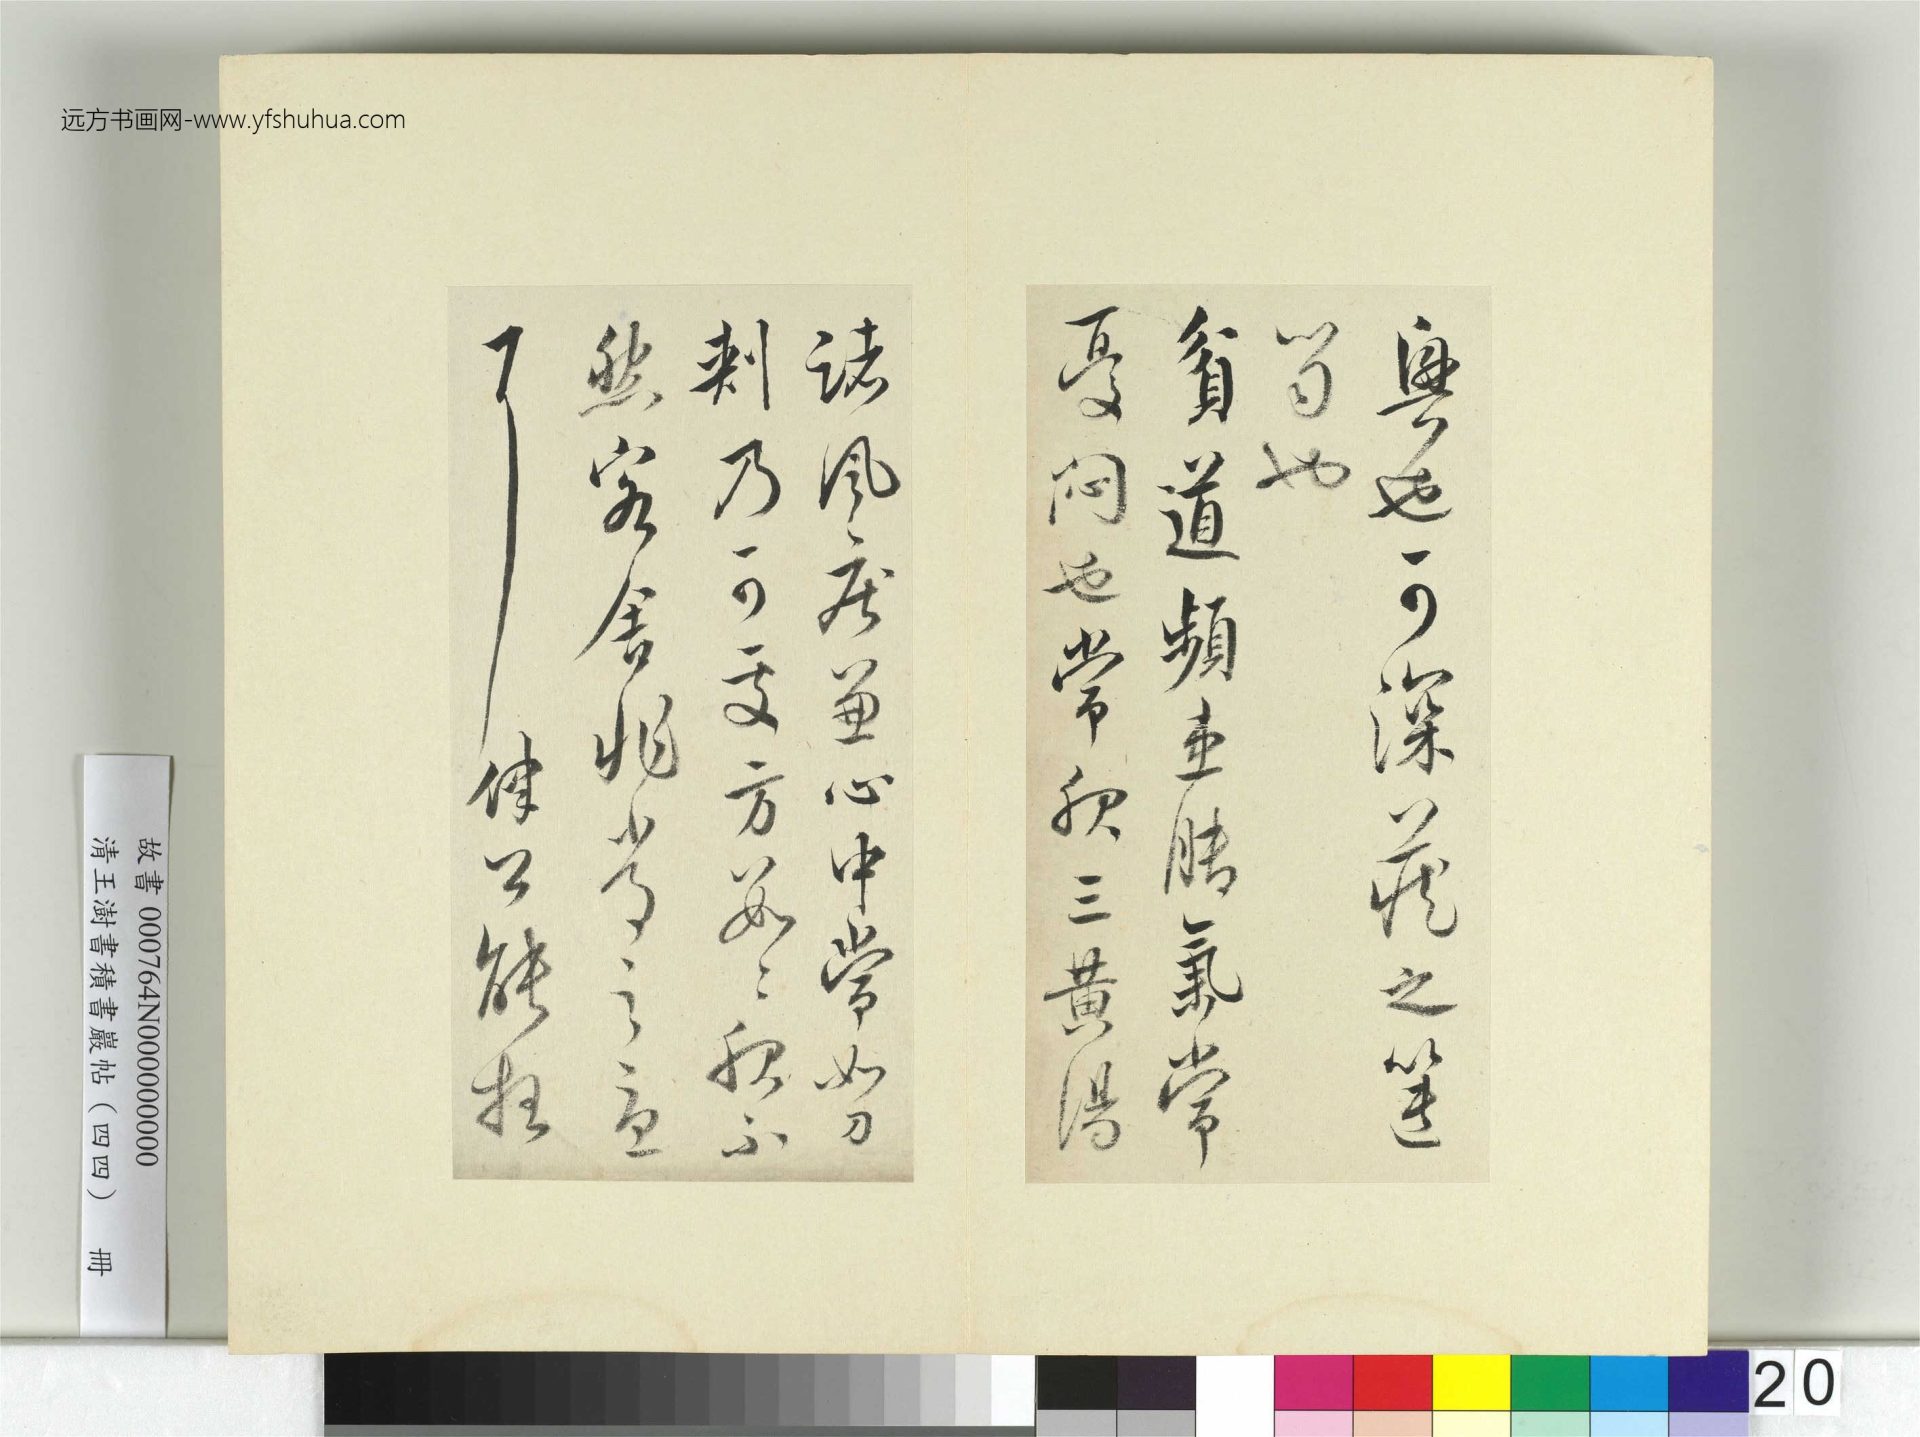 远方书画网-www.yfshuhua.com
奧也可深藏之篋
笥也
貧道頻患腳氣常
憂悶也常服三黃湯
諸風疾兼心中常如刀
刺乃可處方數〻服不
然客舍非常之
耳律公能枉
故書 000764N000000000
清王澍書積書巖帖（四四） 冊
20